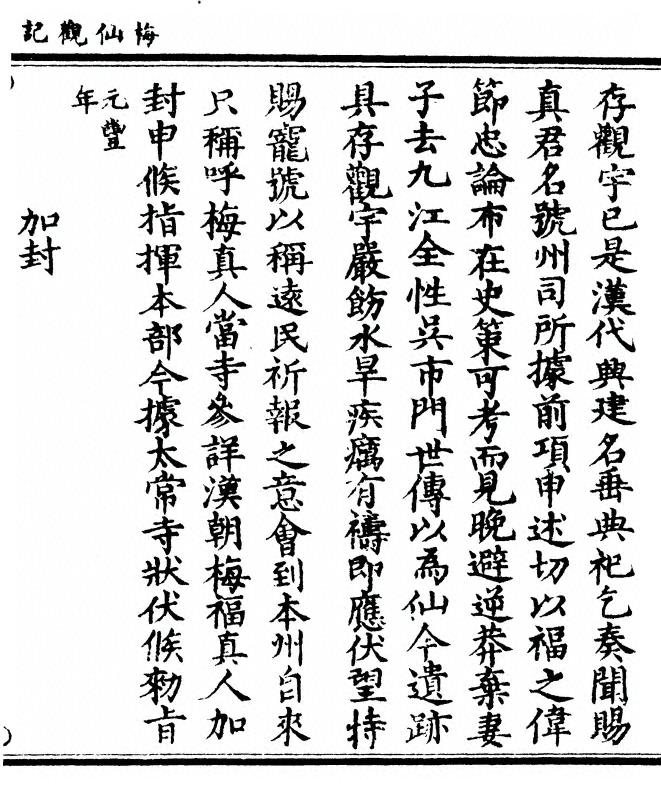 梅仙觀記
存觀宇已是漢代興建名垂典祀乞奏聞賜
真君名號州司所據前項申述切以福之偉
節忠論布在史策可考而見晚避逆莽棄妻
子去九江全性吳市門世傳以為仙今遺跡
具存觀宇嚴飭水旱疾癘有禱即應伏望特
賜寵號以稱遠民祈報之意會到本州自來
只稱呼梅真人當寺參詳漢朝梅福真人加
封申候指揮本部今據太常寺狀伏候勑旨
元豐年
加封